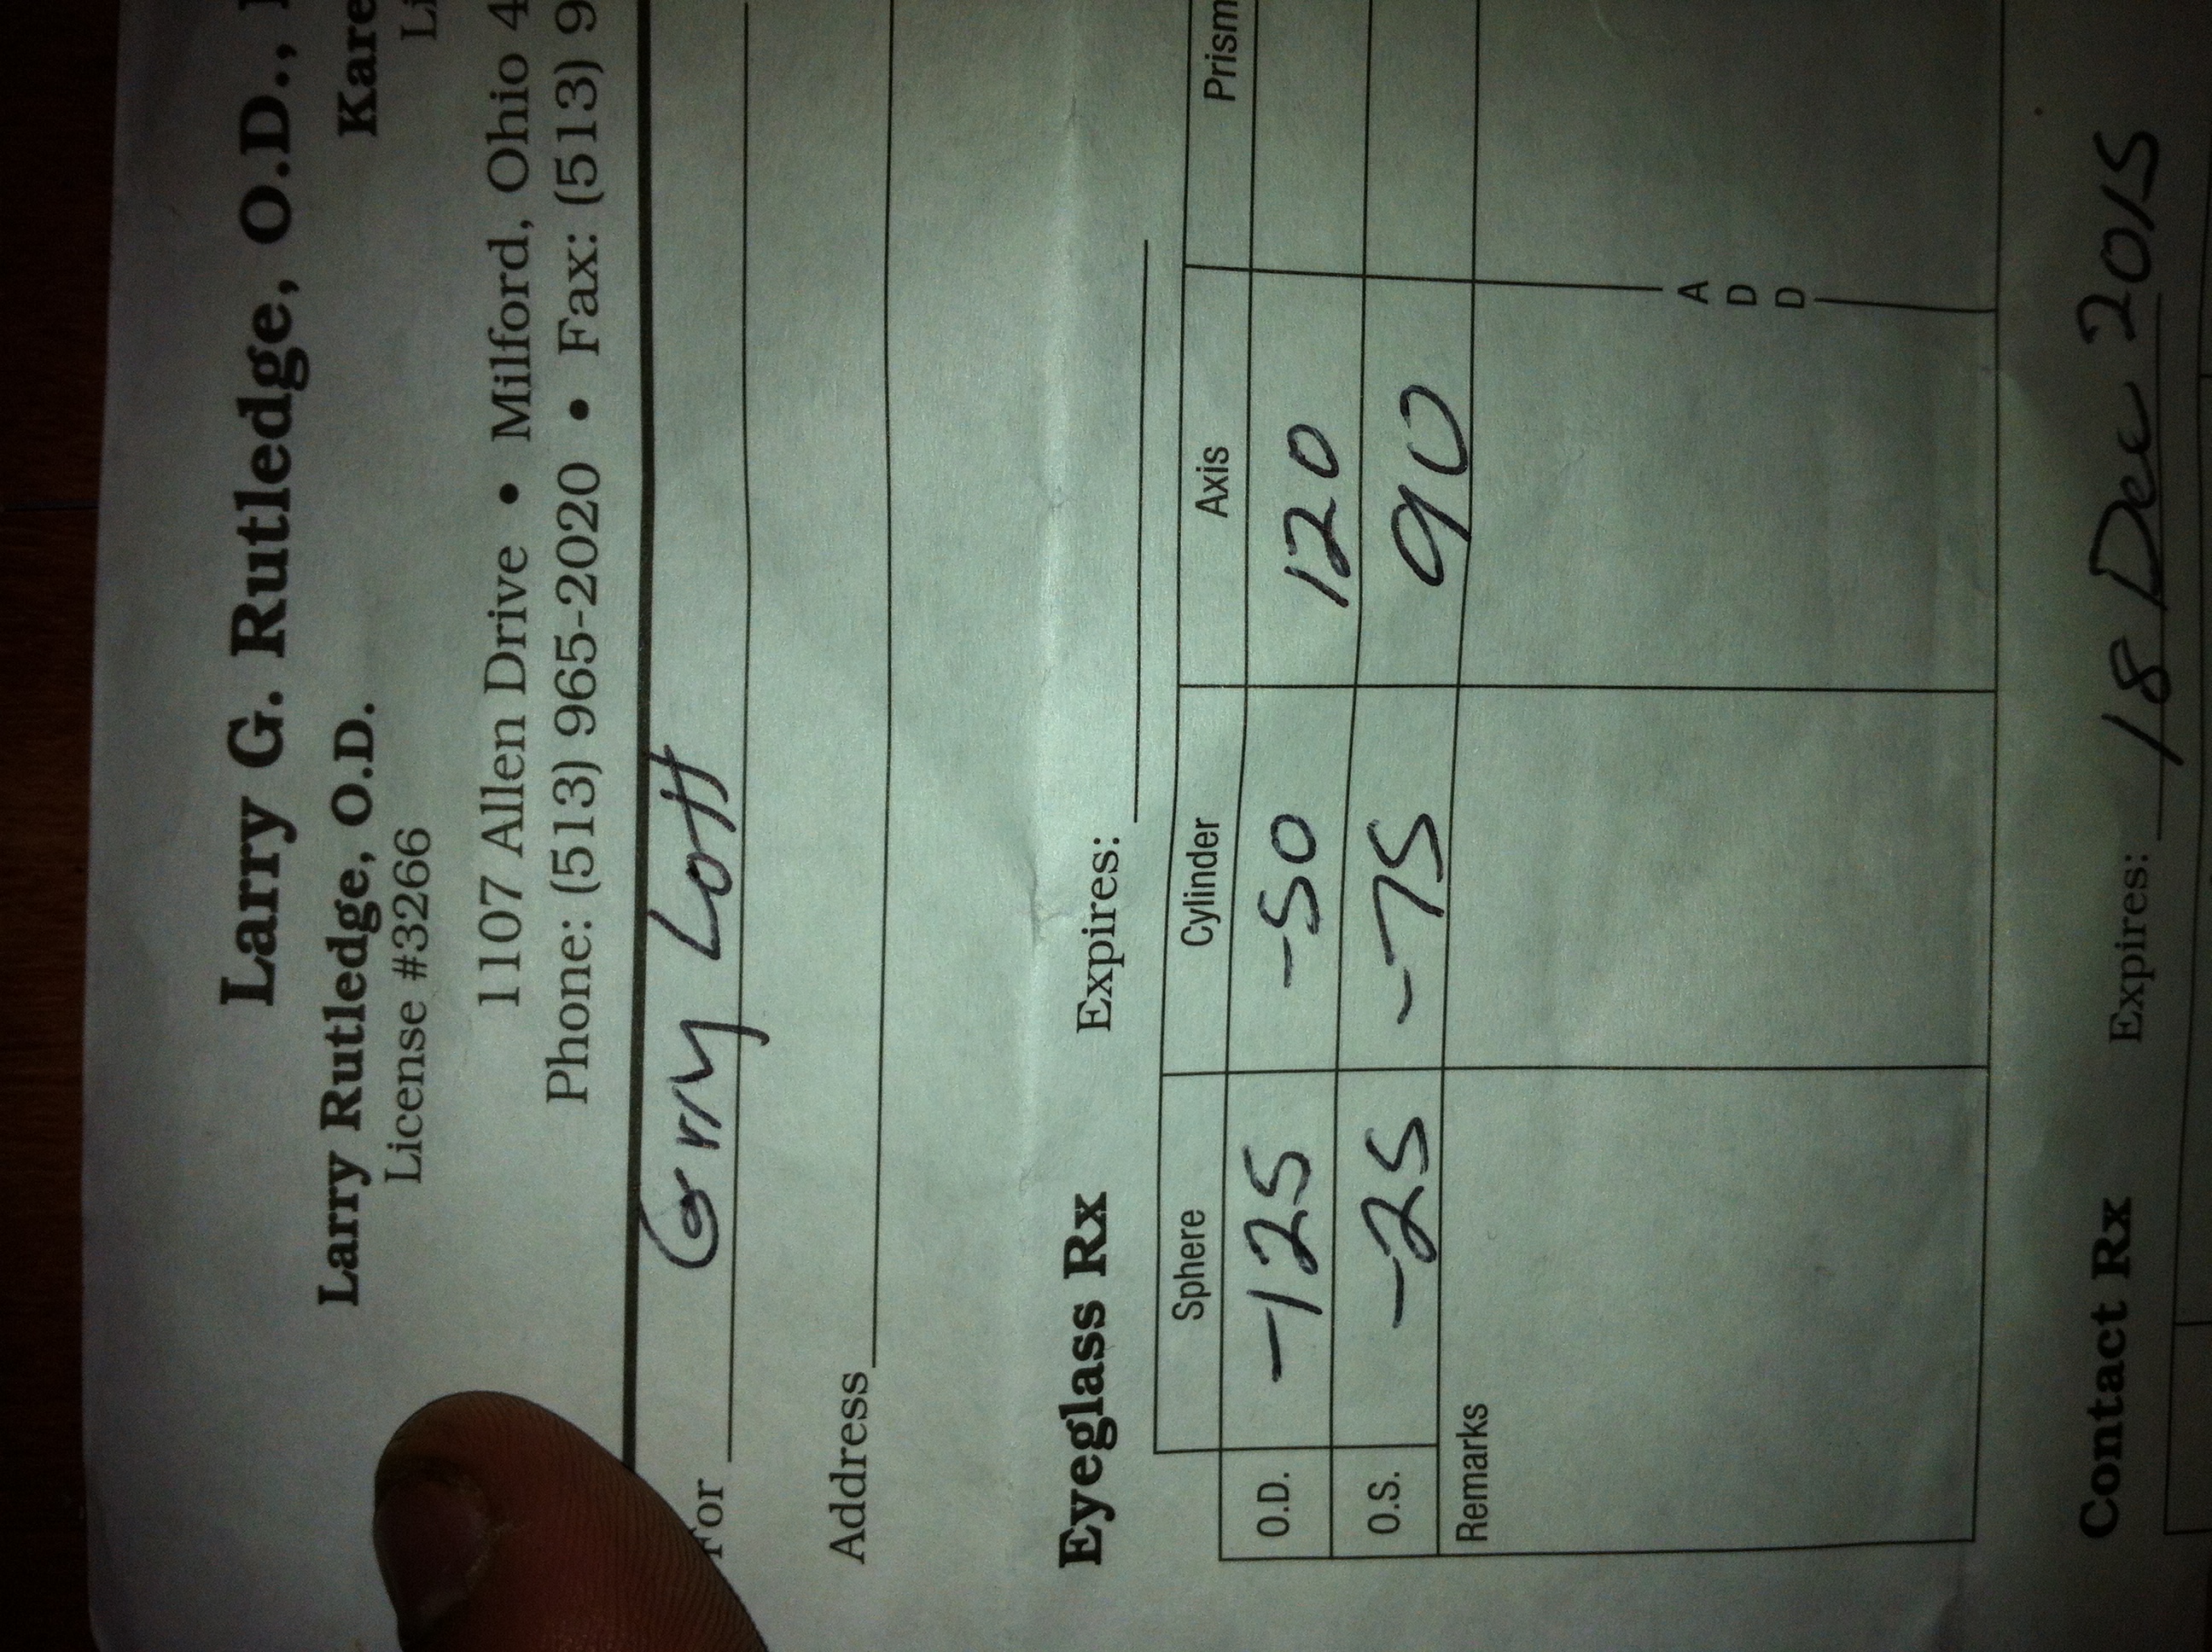 Larry G. Rutledge, O.D.,
Larry Rutledge, O.D. Kare
License #3266 Li
1107 Allen Drive • Milford, Ohio 4
Phone: (513) 965-2020 • Fax: (513) 9
For Lott
Address
Eyeglass Rx Expires:
Sphere Cylinder Axis Prism
O.D. -125 -50 120
O.S. -25 -75 90
Remarks
ADD
Contact Rx Expires: 18 Dec 2015